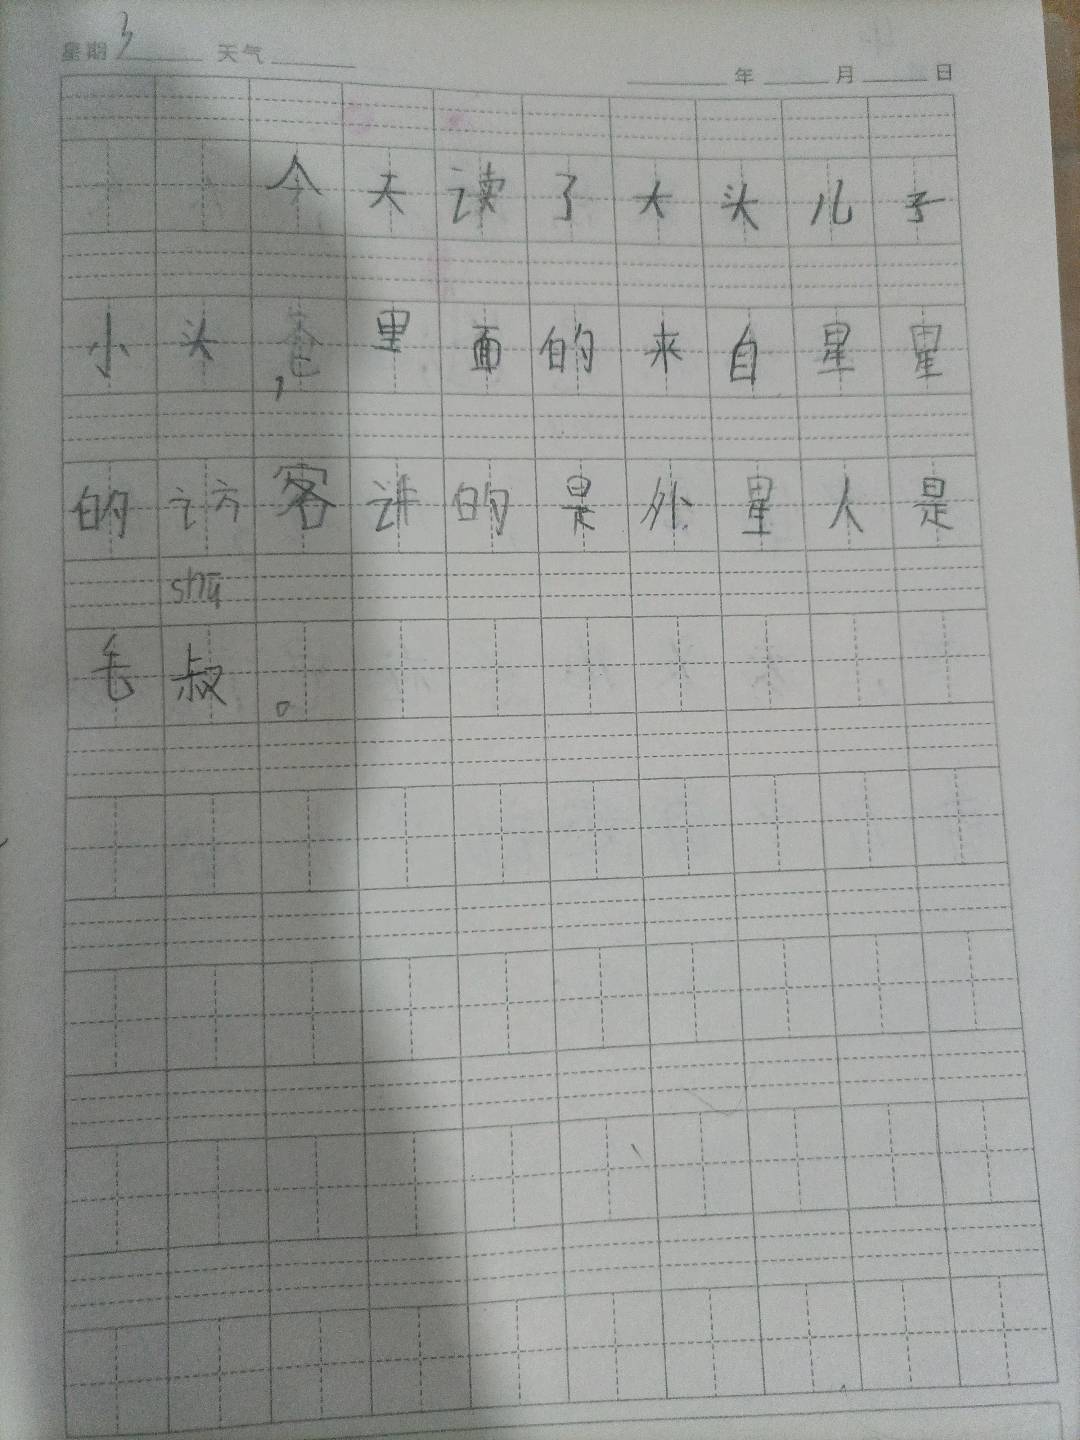 星期3 天气
年 月 日
今天读了大头儿子
小头爸,里面的来自星星
的访客讲的是外星人是
shū
毛叔。